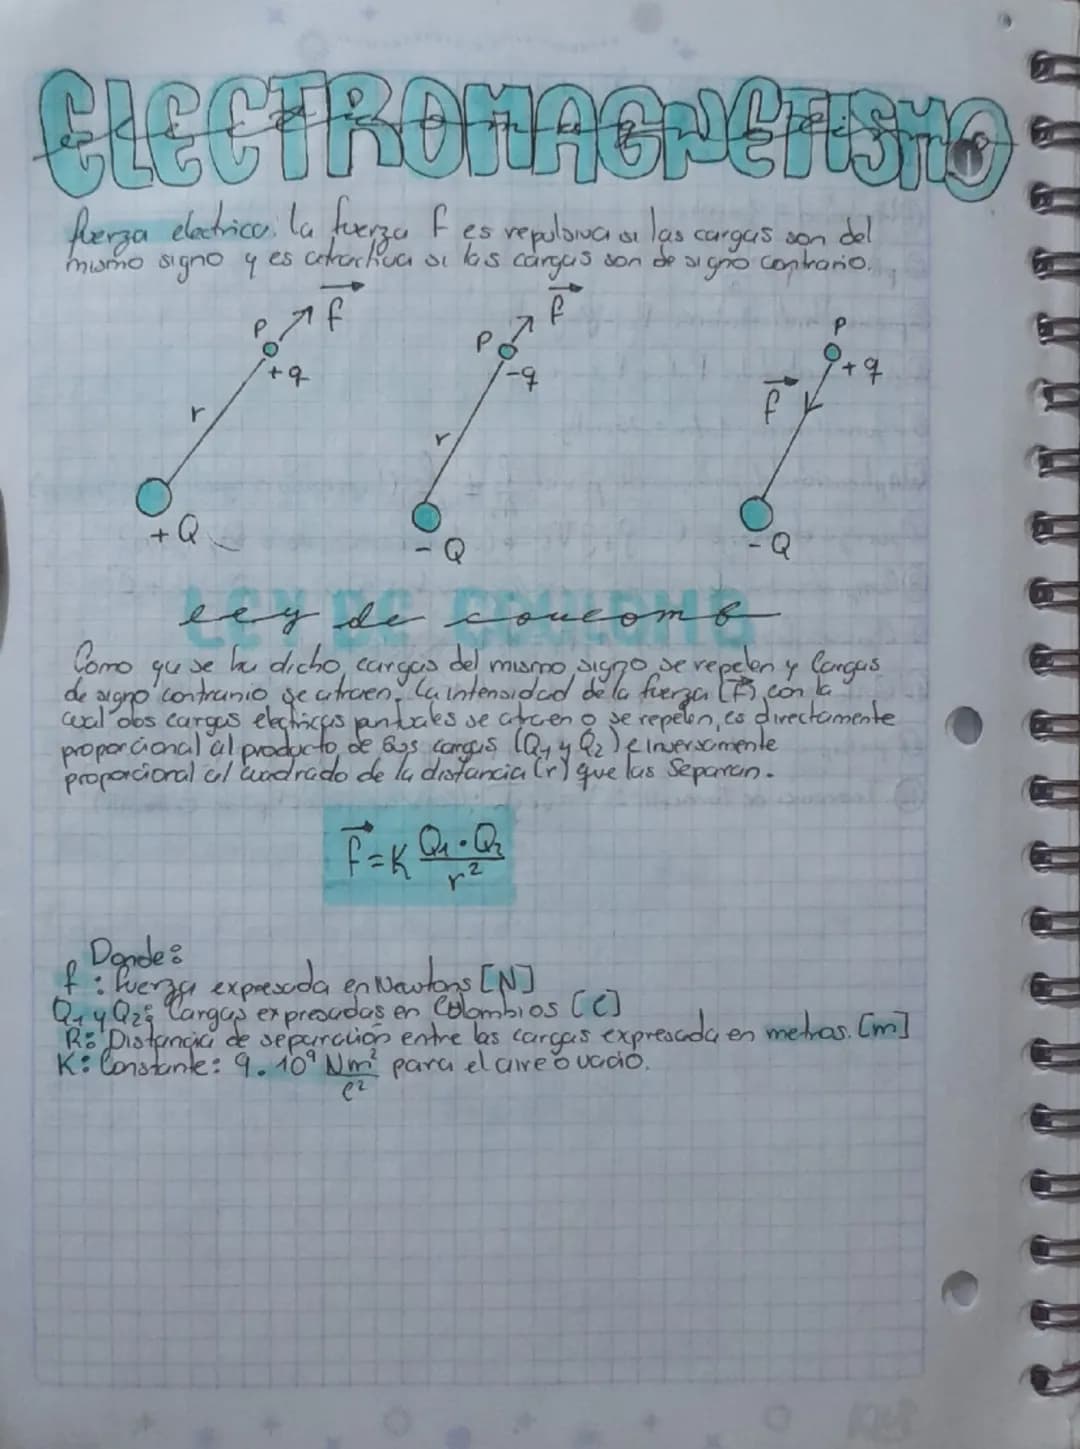 ELECTROMAGNETISMO
fuerza electrica: la fuerza f es repulsiva si las cargas son del
mismo signo y es atractiva si las cargas son de signo contrario.
P f
+q
r
+Q
P f
-q
r
-Q
P
+q
f
-Q
LEY DE COULOMB
ley de coulomb
Como ya se ha dicho, cargas del mismo signo se repelen y Cargas
de signo contrario se atraen. La intensidad de la fuerza (F) con la
cual dos cargas electricas puntuales se atraen o se repelen, es directamente
proporcional al producto de sus cargas (Q1 y Q2) e inversamente
proporcional al cuadrado de la distancia (r) que las Separan.
f = K Q1 · Q2 / r²
Donde:
f: fuerza expresada en Newtons [N]
Q1 y Q2: Cargas expresadas en Colombios [C]
R: Distancia de separación entre las cargas expresada en metros. [m]
K: Constante: 9.10⁹ Nm²/C² para el aire o vacio.